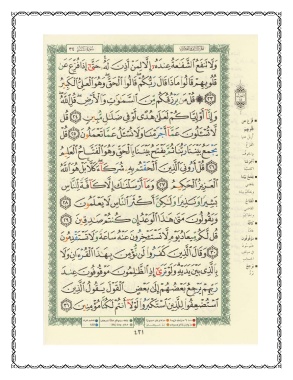 وَلَا تَنفَعُ الشَّفَاعَةُ عِندَهُ إِلَّا لِمَنْ أَذِنَ لَهُ حَتَّىٰ إِذَا فُزِّعَ عَن
قُلُوبِهِمْ قَالُوا مَاذَا قَالَ رَبُّكُمْ قَالُوا الْحَقَّ وَهُوَ الْعَلِيُّ الْكَبِيرُ
٢٣ ۞ قُلْ مَن يَرْزُقُكُم مِّنَ السَّمَاوَاتِ وَالْأَرْضِ قُلِ اللَّهُ
وَإِنَّا أَوْ إِيَّاكُمْ لَعَلَىٰ هُدًى أَوْ فِي ضَلَالٍ مُّبِينٍ ٢٤ قُل
لَّا تُسْأَلُونَ عَمَّا أَجْرَمْنَا وَلَا نُسْأَلُ عَمَّا تَعْمَلُونَ ٢٥ قُلْ
يَجْمَعُ بَيْنَنَا رَبُّنَا ثُمَّ يَفْتَحُ بَيْنَنَا بِالْحَقِّ وَهُوَ الْفَتَّاحُ الْعَلِيمُ
٢٦ قُلْ أَرُونِيَ الَّذِينَ أَلْحَقْتُم بِهِ شُرَكَاءَ كَلَّا بَلْ هُوَ اللَّهُ
الْعَزِيزُ الْحَكِيمُ ٢٧ وَمَا أَرْسَلْنَاكَ إِلَّا كَافَّةً لِّلنَّاسِ
بَشِيرًا وَنَذِيرًا وَلَٰكِنَّ أَكْثَرَ النَّاسِ لَا يَعْلَمُونَ ٢٨
وَيَقُولُونَ مَتَىٰ هَٰذَا الْوَعْدُ إِن كُنتُمْ صَادِقِينَ ٢٩
قُل لَّكُم مِّيعَادُ يَوْمٍ لَّا تَسْتَأْخِرُونَ عَنْهُ سَاعَةً وَلَا تَسْتَقْدِمُونَ
٣٠ وَقَالَ الَّذِينَ كَفَرُوا لَن نُّؤْمِنَ بِهَٰذَا الْقُرْآنِ وَلَا
بِالَّذِي بَيْنَ يَدَيْهِ وَلَوْ تَرَىٰ إِذِ الظَّالِمُونَ مَوْقُوفُونَ عِندَ
رَبِّهِمْ يَرْجِعُ بَعْضُهُمْ إِلَىٰ بَعْضٍ الْقَوْلَ يَقُولُ الَّذِينَ
اسْتُضْعِفُوا لِلَّذِينَ اسْتَكْبَرُوا لَوْلَا أَنتُمْ لَكُنَّا مُؤْمِنِينَ ٣١
٤٣١